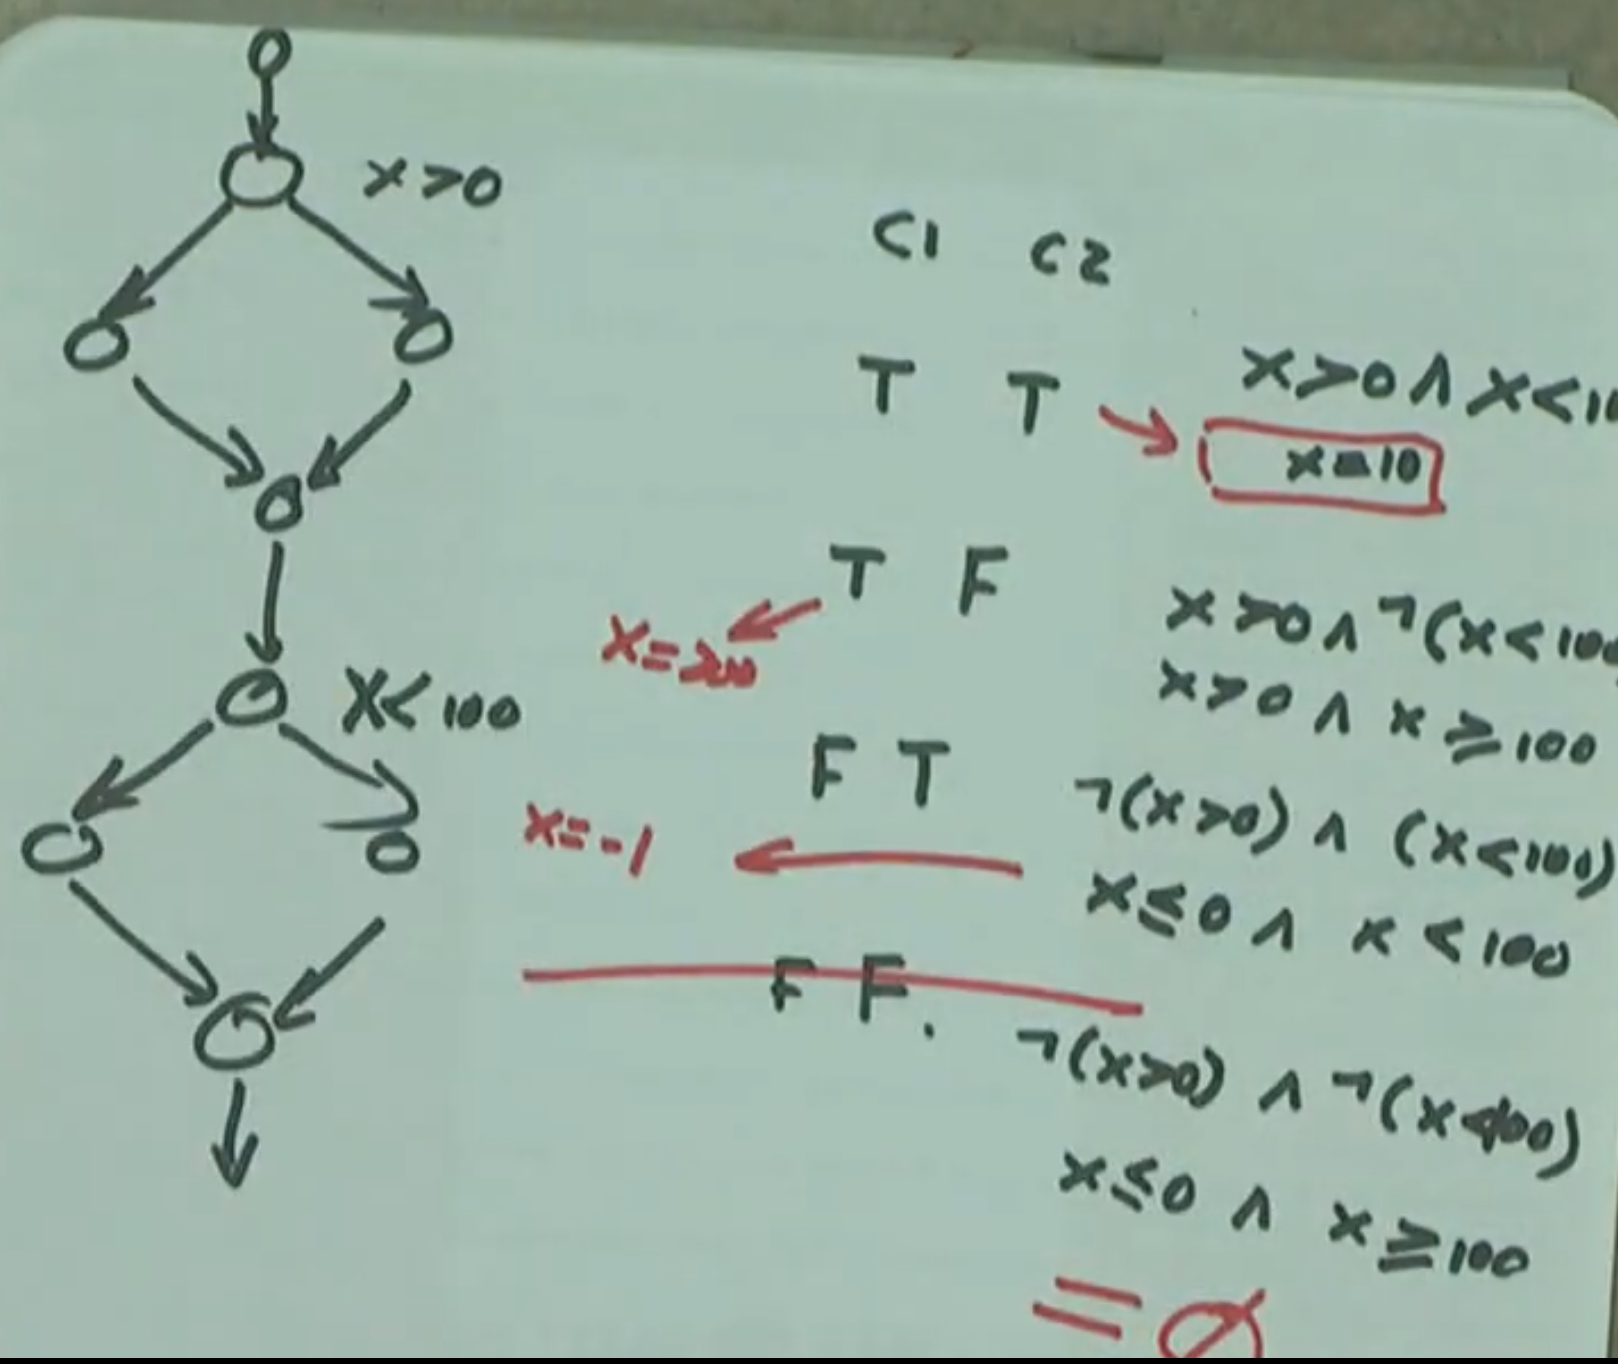 x>0
C1 C2
T T
x>0 ∧ x<10
x=10
T F
x>0 ∧ ¬(x<100
x=200
x>0 ∧ x≥100
X<100
F T
¬(x>0) ∧ (x<100)
x=-1
x≤0 ∧ x<100
F F.
¬(x>0) ∧ ¬(x<100)
x≤0 ∧ x≥100
=∅